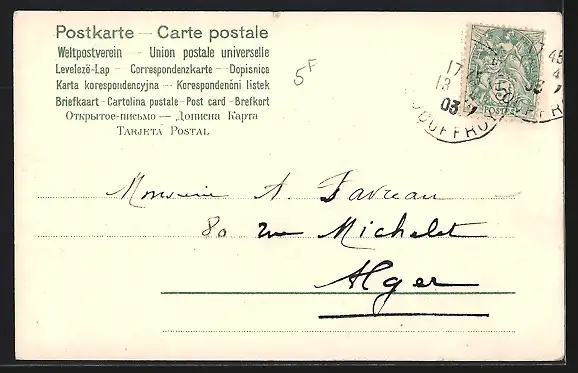 Postkarte — Carte postale
Weltpostverein — Union postale universelle
Levelező-Lap — Correspondenzkarte — Dopisnica
Karta korespondencyjna — Korespondenční lístek
Briefkaart - Cartolina postale - Post card - Brefkort
Открытое-письмо — Дописна Карта
Tarjeta Postal
5F
17
13
03
POSTES
Monsieur A. Favreau
80 rue Michelet
Alger